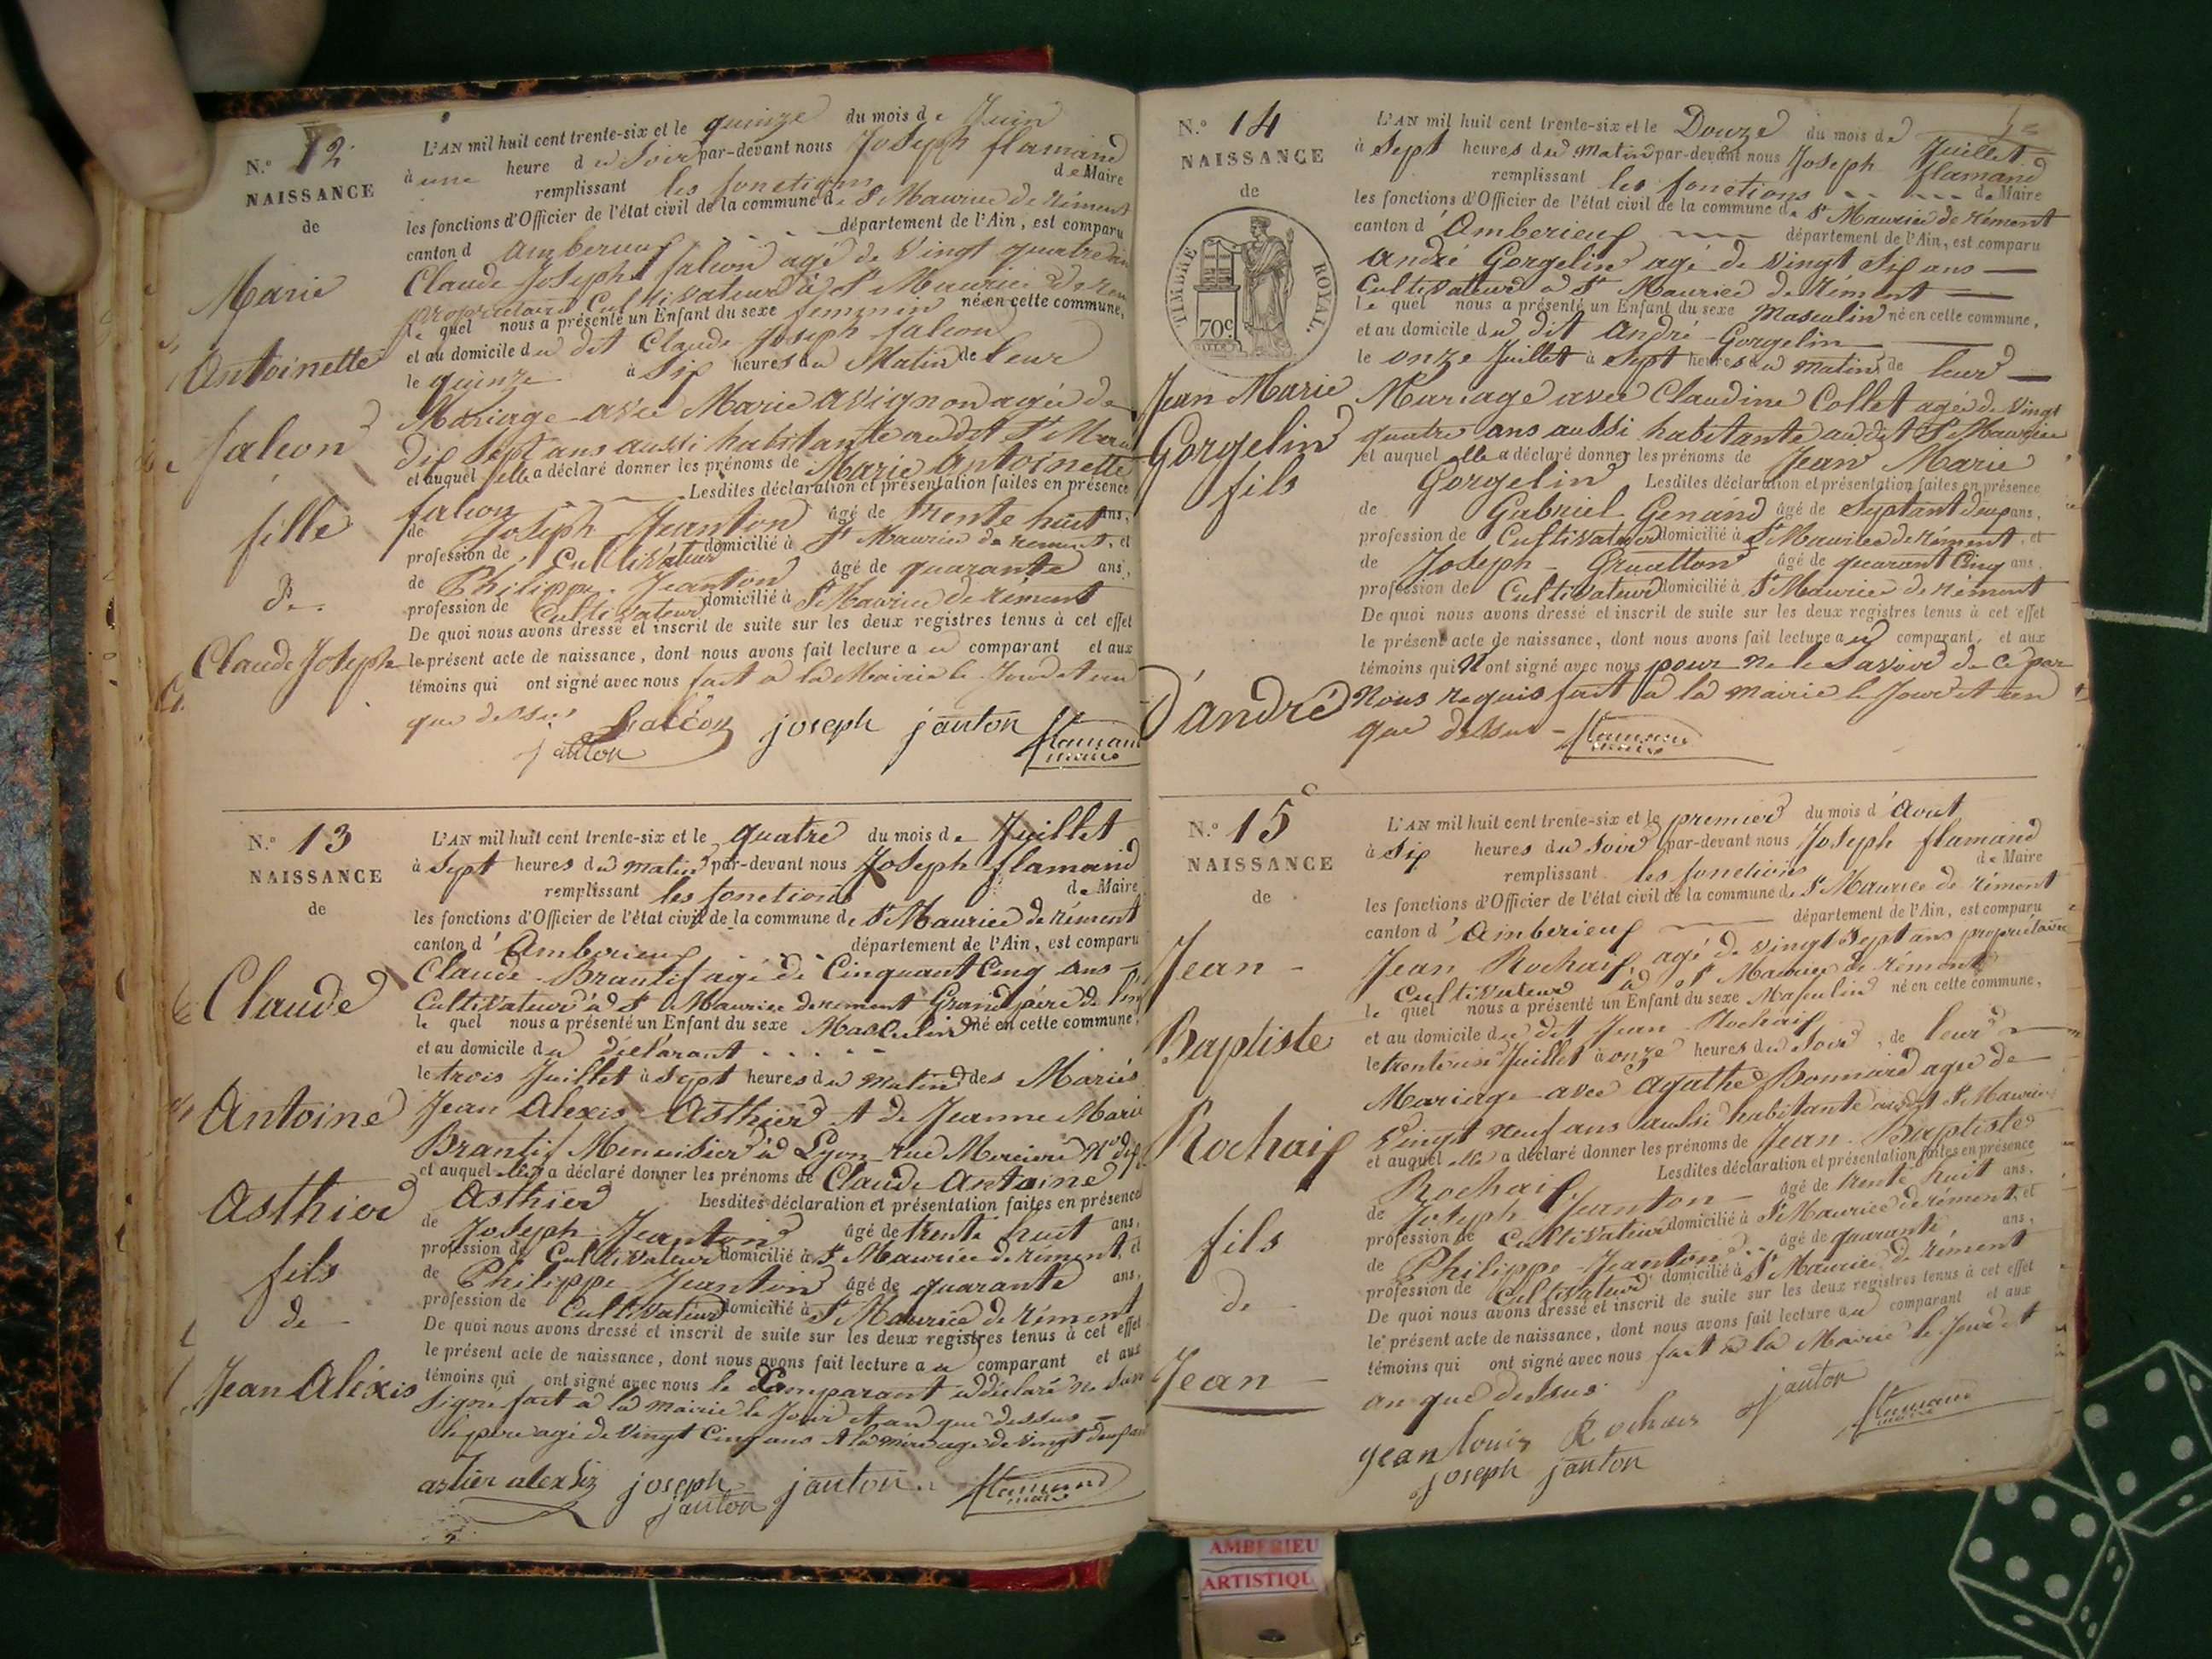 N.º 12
NAISSANCE
de
Marie
Antoinette
falcon
fille
de
Claude Joseph
L'AN mil huit cent trente-six et le quinze du mois de Juin
à une heure du Soir par-devant nous Joseph flamand
remplissant les fonctions de Maire
les fonctions d'Officier de l'état civil de la commune de St Maurice de rément
canton d'amberieux département de l'Ain, est comparu
Claude Joseph falcon agé de vingt quatre ans
proprietaire Cultivateur à St Maurice de rém
le quel nous a présenté un Enfant du sexe feminin né en cette commune,
et au domicile du dit Claude Joseph falcon
le quinze à Six heures du Matin de leur
Mariage avec Marie avignon agée de
dix Sept ans aussi habitante au dit St Mau
et auquel elle a déclaré donner les prénoms de Marie Antoinette
falcon Lesdites déclaration et présentation faites en présence
de Joseph Jeanton âgé de trente huit ans,
profession de Cultivateur domicilié à St Maurice de rément, et
de Philippe Jeanton âgé de quarante ans,
profession de Cultivateur domicilié à St Maurice de rément
De quoi nous avons dressé et inscrit de suite sur les deux registres tenus à cet effet
le présent acte de naissance, dont nous avons fait lecture au comparant et aux
témoins qui ont signé avec nous fait à la Mairie le Jour et an
que dessus falcon joseph janton flamand
janton maire
N.º 13
NAISSANCE
de
Claude
Antoine
Asthier
fils
de
Jean Aléxis
L'AN mil huit cent trente-six et le quatre du mois de Juillet
à Sept heures du matin par-devant nous Joseph flamand
remplissant les fonctions de Maire
les fonctions d'Officier de l'état civil de la commune de St Maurice de rément
canton d'Amberieux département de l'Ain, est comparu
Claude Brantif agé de Cinquant Cinq ans
Cultivateur à St Maurice de rément Grand père de l'en
le quel nous a présenté un Enfant du sexe Masculin né en cette commune,
et au domicile du déclarant
le trois Juillet à Sept heures du matin des Mariés
Jean Alexis Asthier et de Jeanne Marie
Brantif Menuisier à Lyon rue Merciere No dix
et auquel il a déclaré donner les prénoms de Claude Antoine
Asthier Lesdites déclaration et présentation faites en présence
de Joseph Jeanton âgé de trente huit ans,
profession de Cultivateur domicilié à St Maurice de rément, et
de Philippe Jeanton âgé de quarante ans,
profession de Cultivateur domicilié à St Maurice de rément
De quoi nous avons dressé et inscrit de suite sur les deux registres tenus à cet effet
le présent acte de naissance, dont nous avons fait lecture au comparant et aux
témoins qui ont signé avec nous le Comparant a déclaré ne savoir
Signé fait à la mairie le Jour et an que dessus
le pere agé de vingt Cinq ans et la mère agé de vingt deux ans
astier alexsiz joseph janton flamand
janton maire
N.º 14
NAISSANCE
de
TIMBRE ROYAL.
70c
Jean Marie
Gorgelin
fils
d'andré
L'AN mil huit cent trente-six et le Douze du mois de Juillet
à Sept heures du matin par-devant nous Joseph flamand
remplissant les fonctions de Maire
les fonctions d'Officier de l'état civil de la commune de St Maurice de rément
canton d'Amberieux département de l'Ain, est comparu
andré Gorgelin agé de vingt Six ans
Cultivateur à St Maurice de rément
le quel nous a présenté un Enfant du sexe Masculin né en cette commune,
et au domicile du dit andré Gorgelin
le onze Juillet à Sept heures du matin de leur
Mariage avec Claudine Collet agée de vingt
quatre ans aussi habitante au dit St Maurice
et auquel elle a déclaré donner les prénoms de Jean Marie
Gorgelin Lesdites déclaration et présentation faites en présence
de Gabriel Genand âgé de Septant deux ans,
profession de Cultivateur domicilié à St Maurice de rément, et
de Joseph Gruatton âgé de quarant Cinq ans,
profession de Cultivateur domicilié à St Maurice de rément
De quoi nous avons dressé et inscrit de suite sur les deux registres tenus à cet effet
le présent acte de naissance, dont nous avons fait lecture au comparant, et aux
témoins qui N'ont signé avec nous pour ne le Savoir de ce par
Nous requis fait à la mairie le Jour et an
que dessus flamand
maire
N.º 15
NAISSANCE
de
Jean
Baptiste
Rochaix
fils
de
Jean
L'AN mil huit cent trente-six et le premier du mois d'Aout
à Six heures du Soir par-devant nous Joseph flamand
remplissant les fonctions de Maire
les fonctions d'Officier de l'état civil de la commune de St Maurice de rément
canton d'Amberieux département de l'Ain, est comparu
Jean Rochaix, agé de vingt Sept ans propriétaire
Cultivateur à St Maurice de rément
le quel nous a présenté un Enfant du sexe Masculin né en cette commune,
et au domicile du dit Jean Rochaix
le trente un Juillet à onze heures du Soir, de leur
Mariage avec Agathe Bonnard agée de
vingt neuf ans aussi habitante au dit St Maurice
et auquel elle a déclaré donner les prénoms de Jean Baptiste
Rochaix Lesdites déclaration et présentation faites en présence
de Joseph Jeanton âgé de trente huit ans,
profession de Cultivateur domicilié à St Maurice de rément, et
de Philippe Jeanton âgé de quarante ans,
profession de Cultivateur domicilié à St Maurice de rément
De quoi nous avons dressé et inscrit de suite sur les deux registres tenus à cet effet
le présent acte de naissance, dont nous avons fait lecture au comparant et aux
témoins qui ont signé avec nous fait à la Mairie le Jour et
an que dessus janton
jean louis Rochaix flamand
joseph janton maire
AMBERIEU
ARTISTIQU